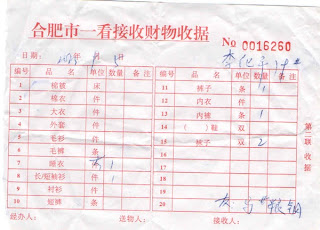 合肥市一看接收财物收据
No 0016260
日期: 年 月 日
编号 品名 单位 数量 备注 编号 品名 单位 数量 备注
1 棉被 床 11 裤子 条 1
2 棉衣 件 12 内衣 件
3 大衣 件 13 内裤 条 1
4 外套 件 14 ( )鞋 双
5 毛衫 件 15 袜子 双 2
6 毛裤 条 16
7 绒衣 件 1 17
8 长/短袖衫 件 1 18
9 衬衫 件 19
10 短裤 条 20
第二联 收据
经办人: 送物人: 接收人: